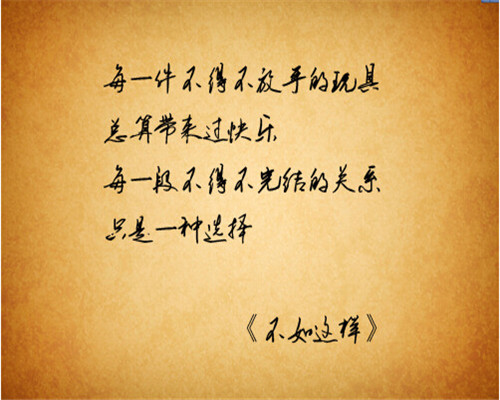 每一件不得不放手的玩具
总算带来过快乐
每一段不得不完结的关系
只是一种选择
《不如这样》